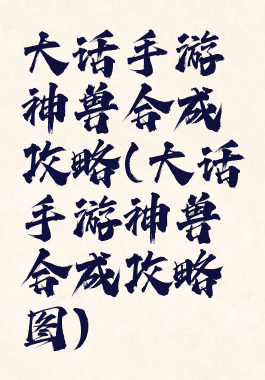 大话手游
神兽合成
攻略(大话
手游神兽
合成攻略
图)